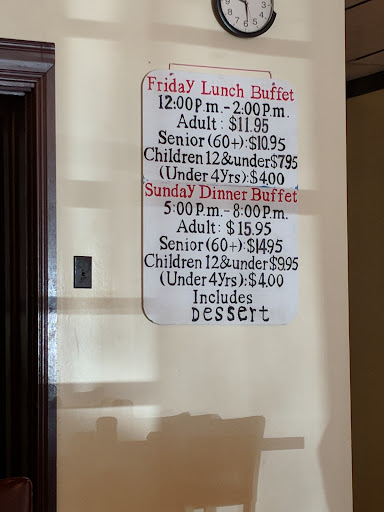 Friday Lunch Buffet
12:00P.m.-2:00P.m.
Adult: $11.95
Senior(60+):$10.95
Children 12&under$7.95
(Under 4yrs):$4.00
Sunday Dinner Buffet
5:00P.m.-8:00P.m.
Adult: $15.95
Senior(60+):$14.95
Children 12&under$9.95
(Under 4yrs):$4.00
Includes
Dessert